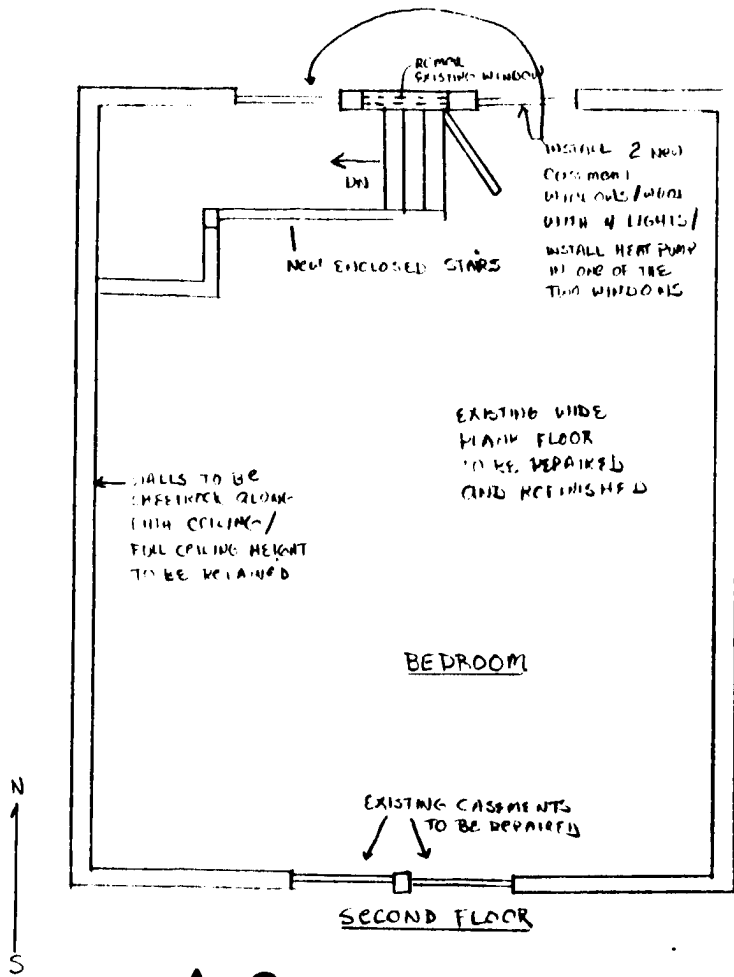 EXISTING WINDOW
DN
NEW ENCLOSED STAIRS
INSTALL 2 NEW
CASEMENT
WINDOWS/WOOD
WITH 4 LIGHTS/
INSTALL HEAT PUMP
IN ONE OF THE
TWO WINDOWS
EXISTING WIDE
PLANK FLOOR
TO BE REPAIRED
AND REFINISHED
WALLS TO BE
SHEETROCK ALONG
WITH CEILING/
FULL CEILING HEIGHT
TO BE RETAINED
BEDROOM
N
S
EXISTING CASEMENTS
TO BE REPAIRED
SECOND FLOOR